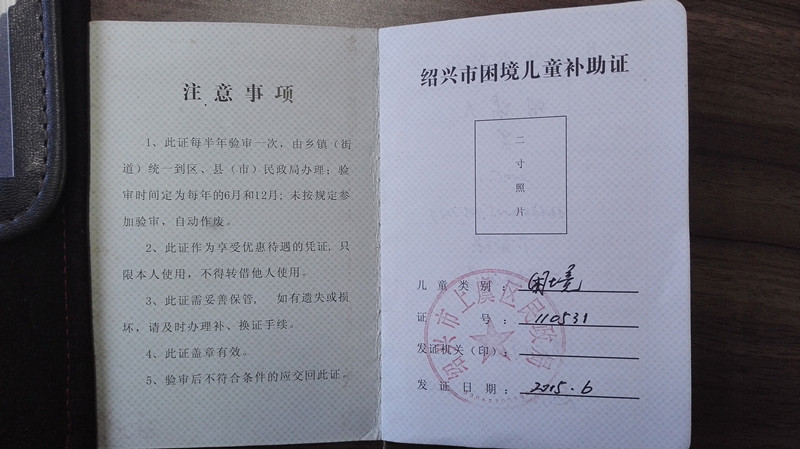 注意事项
1、此证每半年验审一次，由乡镇（街
道）统一到区、县（市）民政局办理；验
审时间定为每年的6月和12月；未按规定参
加验审，自动作废。
2、此证作为享受优惠待遇的凭证，只
限本人使用，不得转借他人使用。
3、此证需妥善保管， 如有遗失或损
坏，请及时办理补、换证手续。
4、此证盖章有效。
5、验审后不符合条件的应交回此证。
绍兴市困境儿童补助证
二
寸
照
片
儿童类别：困境
证号：110531
发证机关（印）：
发证日期：2015.6
绍兴市上虞区民政局